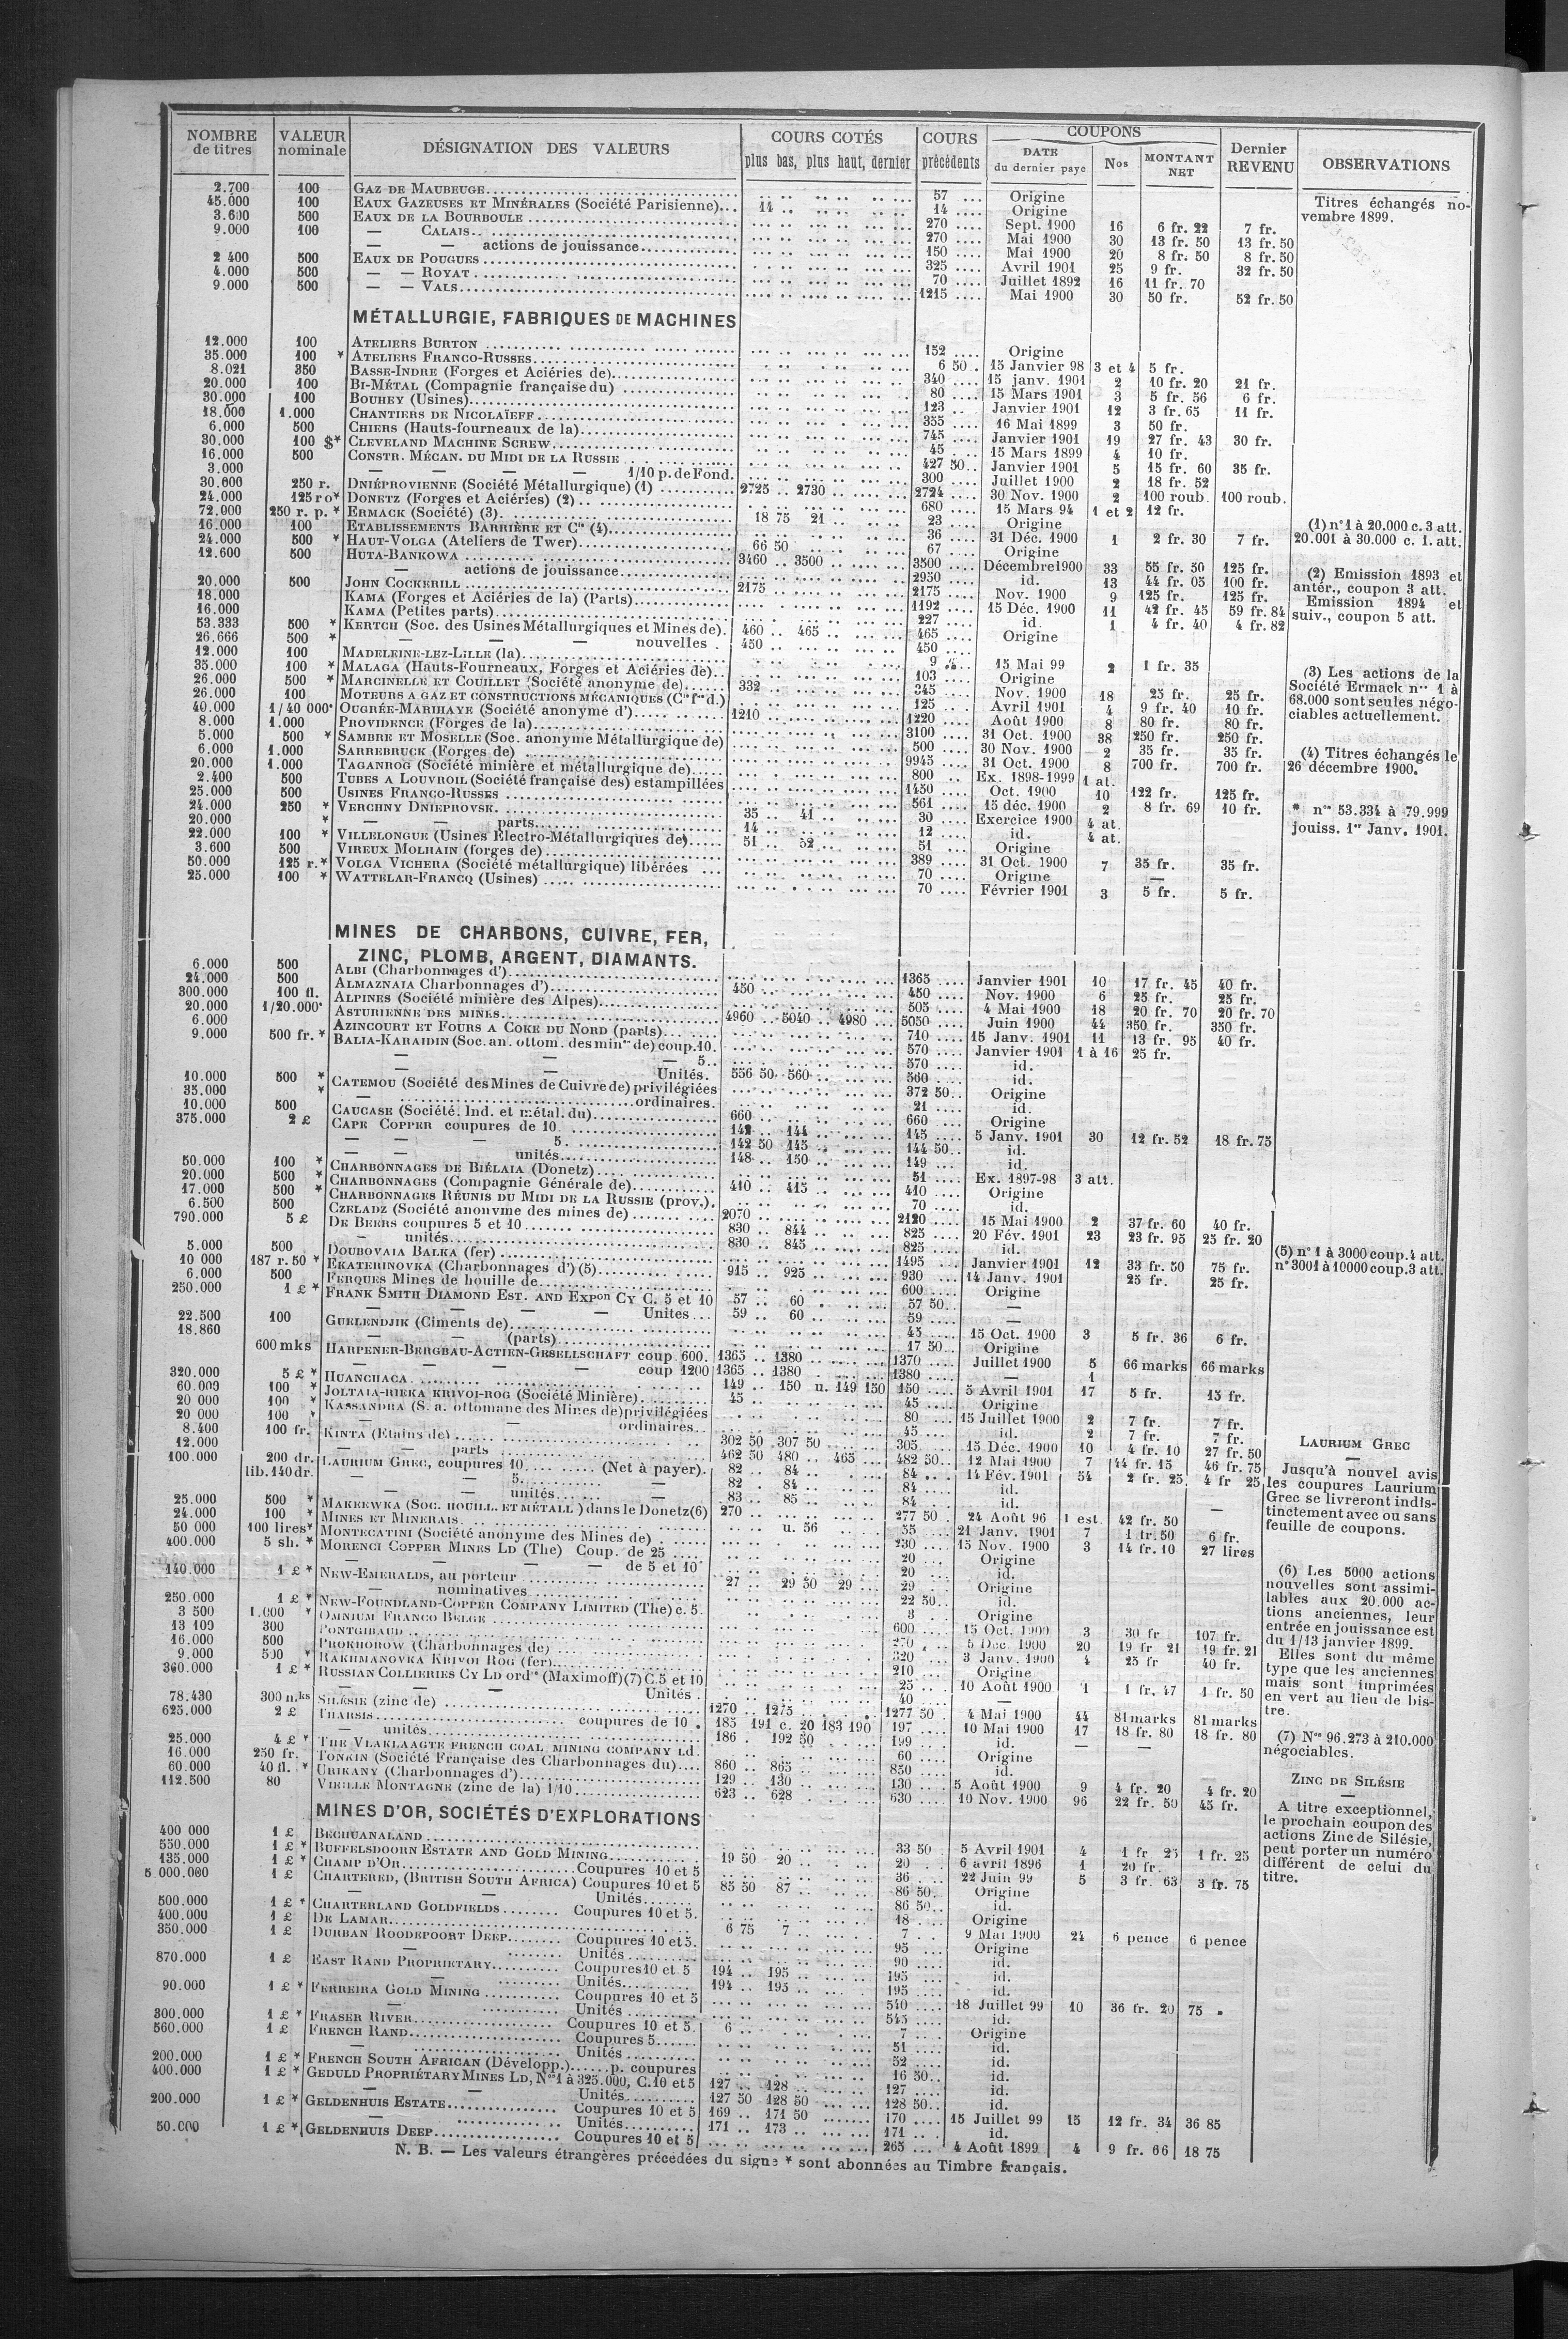 NOMBRE de titres | VALEUR nominale | DÉSIGNATION DES VALEURS | COURS COTÉS plus bas, plus haut, dernier | COURS précédents | COUPONS DATE du dernier paye | Nos | MONTANT NET | Dernier REVENU | OBSERVATIONS
2.700 100 GAZ DE MAUBEUGE 57 Origine
45.000 100 EAUX GAZEUSES ET MINÉRALES (Société Parisienne) 14 14 Origine
3.600 500 EAUX DE LA BOURBOULE 270 Sept. 1900 16 6 fr. 22 7 fr.
9.000 100 — CALAIS 270 Mai 1900 30 13 fr. 50 13 fr. 50
— — actions de jouissance 150 Mai 1900 20 8 fr. 50 8 fr. 50
2 400 500 EAUX DE POUGUES 325 Avril 1901 25 9 fr. 32 fr. 50
4.000 500 — — ROYAT 70 Juillet 1892 16 11 fr. 70
9.000 500 — — VALS 1215 Mai 1900 30 50 fr. 52 fr. 50
Titres échangés no-
vembre 1899.
MÉTALLURGIE, FABRIQUES DE MACHINES
12.000 100 ATELIERS BURTON 152 Origine
35.000 100 * ATELIERS FRANCO-RUSSES 6 50 15 Janvier 98 3 et 4 5 fr.
8.021 350 BASSE-INDRE (Forges et Aciéries de) 340 15 janv. 1901 2 10 fr. 20 21 fr.
20.000 100 BI-MÉTAL (Compagnie française du) 80 15 Mars 1901 3 5 fr. 56 6 fr.
30.000 100 BOUHEY (Usines) 123 Janvier 1901 12 3 fr. 65 11 fr.
18.000 1.000 CHANTIERS DE NICOLAÏEFF 355 16 Mai 1899 3 50 fr.
6.000 500 CHIERS (Hauts-fourneaux de la) 745 Janvier 1901 19 27 fr. 43 30 fr.
30.000 100 $* CLEVELAND MACHINE SCREW 45 15 Mars 1899 4 10 fr.
16.000 500 CONSTR. MÉCAN. DU MIDI DE LA RUSSIE 427 50 Janvier 1901 5 15 fr. 60 35 fr.
3.000 — — — — 1/10 p. de Fond. 300 Juillet 1900 2 18 fr. 52
30.600 250 r. DNIÉPROVIENNE (Société Métallurgique) (1) 2725 2730 2724 30 Nov. 1900 2 100 roub. 100 roub.
24.000 125 ro* DONETZ (Forges et Aciéries) (2) 680 15 Mars 94 1 et 2 12 fr.
72.000 250 r. p. * ERMACK (Société) (3) 18 75 21 23 Origine
16.000 100 ETABLISSEMENTS BARRIÈRE ET Cie (4) 36 31 Déc. 1900 1 2 fr. 30 7 fr.
24.000 500 * HAUT-VOLGA (Ateliers de Twer) 66 50 67 Origine
12.600 500 HUTA-BANKOWA 3460 3500 3500 Décembre 1900 33 55 fr. 50 125 fr.
— actions de jouissance 2950 id. 13 44 fr. 05 100 fr.
20.000 500 JOHN COCKERILL 2175 2175 Nov. 1900 9 125 fr. 125 fr.
18.000 KAMA (Forges et Aciéries de la) (Parts) 1192 15 Déc. 1900 11 42 fr. 45 59 fr. 84
16.000 KAMA (Petites parts) 227 id. 1 4 fr. 40 4 fr. 82
53.333 500 * KERTCH (Soc. des Usines Métallurgiques et Mines de) 460 465 465 Origine
26.666 500 * — — — nouvelles 450 450
12.000 100 MADELEINE-LEZ-LILLE (la) 9 15 Mai 99 2 1 fr. 35
35.000 100 * MALAGA (Hauts-Fourneaux, Forges et Aciéries de) 103 Origine
26.000 500 * MARCINELLE ET COUILLET (Société anonyme de) 332 345 Nov. 1900 18 25 fr. 25 fr.
26.000 100 MOTEURS A GAZ ET CONSTRUCTIONS MÉCANIQUES (Cie fse d.) 125 Avril 1901 4 9 fr. 40 10 fr.
40.000 1/40 000* OUGRÉE-MARIHAYE (Société anonyme d') 1210 1220 Août 1900 8 80 fr. 80 fr.
8.000 1.000 PROVIDENCE (Forges de la) 3100 31 Oct. 1900 38 250 fr. 250 fr.
5.000 500 * SAMBRE ET MOSELLE (Soc. anonyme Métallurgique de) 500 30 Nov. 1900 2 35 fr. 35 fr.
6.000 1.000 SARREBRUCK (Forges de) 9945 31 Oct. 1900 8 700 fr. 700 fr.
20.000 1.000 TAGANROG (Société minière et métallurgique de) 800 Ex. 1898-1999 1 at.
2.400 500 TUBES A LOUVROIL (Société française des) estampillées 1450 Oct. 1900 10 122 fr. 125 fr.
25.000 500 USINES FRANCO-RUSSES 561 15 déc. 1900 2 8 fr. 69 10 fr.
24.000 250 * VERCHNY DNIEPROVSK 35 41 30 Exercice 1900 4 at.
20.000 * — — parts 14 12 id. 4 at.
22.000 100 * VILLELONGUE (Usines Électro-Métallurgiques de) 51 52 51 Origine
3.600 500 VIREUX MOLHAIN (forges de) 389 31 Oct. 1900 7 35 fr. 35 fr.
50.000 125 r.* VOLGA VICHERA (Société métallurgique) libérées 70 Origine —
25.000 100 * WATTELAR-FRANCQ (Usines) 70 Février 1901 3 5 fr. 5 fr.
(1) n° 1 à 20.000 c. 3 att.
20.001 à 30.000 c. 1. att.
(2) Emission 1893 et
antér., coupon 3 att.
Emission 1894 et
suiv., coupon 5 att.
(3) Les actions de la
Société Ermack nos 1 à
68.000 sont seules négo-
ciables actuellement.
(4) Titres échangés le
26 décembre 1900.
* nos 53.334 à 79.999
jouiss. 1er Janv. 1901.
MINES DE CHARBONS, CUIVRE, FER,
ZINC, PLOMB, ARGENT, DIAMANTS.
6.000 500 ALBI (Charbonnages d') 1365 Janvier 1901 10 17 fr. 45 40 fr.
24.000 500 ALMAZNAIA Charbonnages d') 450 450 Nov. 1900 6 25 fr. 25 fr.
300.000 100 fl. ALPINES (Société minière des Alpes) 505 4 Mai 1900 18 20 fr. 70 20 fr. 70
20.000 1/20.000* ASTURIENNE DES MINES 4960 5040 4980 5050 Juin 1900 44 350 fr. 350 fr.
6.000 AZINCOURT ET FOURS A COKE DU NORD (parts) 710 15 Janv. 1901 11 13 fr. 95 40 fr.
9.000 500 fr. * BALIA-KARAIDIN (Soc. an. ottom. des mines de) coup. 10. 570 Janvier 1901 1 à 16 25 fr.
— — — 5 570 id.
— — Unités. 556 50 560 560 id.
10.000 500 * CATEMOU (Société des Mines de Cuivre de) privilégiées 372 50 Origine
35.000 * — ordinaires. 21 id.
10.000 500 CAUCASE (Société. Ind. et métal. du) 660 660 Origine
375.000 2 £ CAPE COPPER coupures de 10 142 144 145 5 Janv. 1901 30 12 fr. 52 18 fr. 75
— — — 5. 142 50 145 144 50 id.
— — unités 148 150 149 id.
50.000 100 * CHARBONNAGES DE BIÉLAIA (Donetz) 51 Ex. 1897-98 3 att.
20.000 500 * CHARBONNAGES (Compagnie Générale de) 410 415 410 Origine
17.000 500 * CHARBONNAGES RÉUNIS DU MIDI DE LA RUSSIE (prov.) 70 id.
6.500 500 CZELADZ (Société anonyme des mines de) 2070 2120 15 Mai 1900 2 37 fr. 60 40 fr.
790.000 5 £ DE BEERS coupures 5 et 10 830 844 825 20 Fév. 1901 23 23 fr. 95 25 fr. 20
— unités 830 845 825 id.
5.000 500 DOUBOVAIA BALKA (fer) 1495 Janvier 1901 12 33 fr. 50 75 fr.
10 000 187 r. 50 * EKATERINOVKA (Charbonnages d') (5) 915 925 930 14 Janv. 1901 25 fr. 25 fr.
6.000 500 FERQUES Mines de houille de 600 Origine
250.000 1 £ * FRANK SMITH DIAMOND EST. AND EXPon CY C. 5 et 10 57 60 57 50 —
— — — — Unites 59 60 59 —
22.500 100 GUELENDJIK (Ciments de) 45 15 Oct. 1900 3 5 fr. 36 6 fr.
18.860 — — (parts) 17 50 Origine
600 mks HARPENER-BERGBAU-ACTIEN-GESELLSCHAFT coup 600. 1365 1380 1370 Juillet 1900 5 66 marks 66 marks
— — — — coup 1200 1365 1380 1380 — 1
320.000 5 £ * HUANCHACA 149 150 u. 149 150 150 5 Avril 1901 17 5 fr. 15 fr.
60.000 100 * JOLTAIA-RIEKA KRIVOI-ROG (Société Minière) 45 45 Origine
20 000 100 * KASSANDRA (S. a. ottomane des Mines de) privilégiées 80 15 Juillet 1900 2 7 fr. 7 fr.
20 000 100 * — — — ordinaires 45 id. 2 7 fr. 7 fr.
8.400 100 fr. KINTA (Etains de) 302 50 307 50 305 15 Déc. 1900 10 4 fr. 10 27 fr. 50
12.000 — — parts 462 50 480 465 482 50 12 Mai 1900 7 44 fr. 15 46 fr. 75
100.000 200 dr. LAURIUM GREC, coupures 10 (Net à payer). 82 84 84 14 Fév. 1901 54 2 fr. 25 4 fr 25
lib. 140 dr. — — 5 — 82 84 84 id.
— — unités — 83 85 84 id.
25.000 500 * MAKEEWKA (SOC. HOUILL. ET MÉTALL) dans le Donetz (6) 270 277 50 24 Août 96 1 est. 42 fr. 50 —
24.000 100 * MINES ET MINERAIS u. 56 55 21 Janv. 1901 7 1 fr. 50 6 fr.
50 000 100 lires* MONTECATINI (Société anonyme des Mines de) 230 15 Nov. 1900 3 14 fr. 10 27 lires
400.000 5 sh. * MORENCI COPPER MINES LD (The) Coup. de 25 20 Origine
— — de 5 et 10 20 id.
140.000 1 £ * NEW-EMERALDS, au porteur 27 29 50 29 29 Origine
— nominatives 22 50 id.
250.000 1 £ * NEW-FOUNDLAND-COPPER COMPANY LIMITED (The) c. 5. 3 Origine
3 500 1.000 * OMNIUM FRANCO BELGE 600 15 Oct. 1900 3 30 fr 107 fr.
13 100 300 PONTGIBAUD 5 Dec. 1900 20 19 fr 21 19 fr. 21
16.000 500 PROKHOROW (Charbonnages de) 320 3 Janv. 1900 4 25 fr 40 fr.
9.000 500 * RAKHMANOVKA KRIVOI ROG (fer) 210 Origine
360.000 1 £ * RUSSIAN COLLIERIES CY LD ordres (Maximoff) (7) C. 5 et 10 25 10 Août 1900 1 1 fr. 47 1 fr. 50
— — — Unités 40 —
78.430 300 m.ks SILÉSIE (zinc de) 1270 1275 1277 50 4 Mai 1900 44 81 marks 81 marks
625.000 2 £ THARSIS coupures de 10 185 191 c. 20 183 190 197 10 Mai 1900 17 18 fr. 80 18 fr. 80
— unités 186 192 50 199 id. — —
25.000 4 £ * THE VLAKLAAGTE FRENCH COAL MINING COMPANY LD 60 Origine
16.000 250 fr. TONKIN (Société Française des Charbonnages du) 860 865 850 id.
60.000 40 fl. * URIKANY (Charbonnages d') 129 130 130 5 Août 1900 9 4 fr. 20 4 fr. 20
112.500 80 VIEILLE MONTAGNE (zinc de la) 1/10 623 628 630 10 Nov. 1900 96 22 fr. 50 45 fr.
(5) n° 1 à 3000 coup. 4 att.
n° 3001 à 10000 coup. 3 att.
LAURIUM GREC
—
Jusqu'à nouvel avis
les coupures Laurium
Grec se livreront indis-
tinctement avec ou sans
feuille de coupons.
(6) Les 5000 actions
nouvelles sont assimi-
lables aux 20.000 ac-
tions anciennes, leur
entrée en jouissance est
du 1/13 janvier 1899.
Elles sont du même
type que les anciennes
mais sont imprimées
en vert au lieu de bis-
tre.
(7) Nos 96.273 à 210.000
négociables.
ZINC DE SILÉSIE
—
A titre exceptionnel,
le prochain coupon des
actions Zinc de Silésie,
peut porter un numéro
différent de celui du
titre.
MINES D'OR, SOCIÉTÉS D'EXPLORATIONS
400 000 1 £ BECHUANALAND 33 50 5 Avril 1901 4 1 fr 25 1 fr. 25
550.000 1 £ * BUFFELSDOORN ESTATE AND GOLD MINING 19 50 20 20 6 avril 1896 1 20 fr.
135.000 1 £ * CHAMP D'OR Coupures 10 et 5 36 22 Juin 99 5 3 fr. 63 3 fr. 75
5.000.000 1 £ CHARTERED, (BRITISH SOUTH AFRICA) Coupures 10 et 5 85 50 87 86 50 Origine
— — Unités 86 50 id.
500.000 1 £ * CHARTERLAND GOLDFIELDS Coupures 10 et 5. 18 Origine
400.000 1 £ DE LAMAR 6 75 7 7 9 Mai 1900 24 6 pence 6 pence
350.000 1 £ DURBAN ROODEPOORT DEEP Coupures 10 et 5. 95 Origine
— Unités 90 id.
870.000 1 £ EAST RAND PROPRIETARY Coupures 10 et 5 194 195 195 id.
— Unités 194 195 195 id.
90.000 1 £ * FERREIRA GOLD MINING Coupures 10 et 5 540 18 Juillet 99 10 36 fr. 20 75 »
— Unités 545 id.
300.000 1 £ * FRASER RIVER Coupures 10 et 5. 6 7 Origine
560.000 1 £ FRENCH RAND Coupures 5 51 id.
— Unités 52 id.
200.000 1 £ * FRENCH SOUTH AFRICAN (Développ.) p. coupures 16 50 id.
400.000 1 £ * GEDULD PROPRIÉTARY MINES LD, Nos 1 à 325.000, C. 10 et 5 127 128 127 id.
— — Unités 127 50 128 50 128 50 id.
200.000 1 £ * GELDENHUIS ESTATE Coupures 10 et 5 169 171 50 170 15 Juillet 99 15 12 fr. 34 36 85
— Unités 171 173 171 id.
50.000 1 £ * GELDENHUIS DEEP Coupures 10 et 5 265 4 Août 1899 4 9 fr. 66 18 75
N. B. — Les valeurs étrangères précédées du signe * sont abonnées au Timbre français.